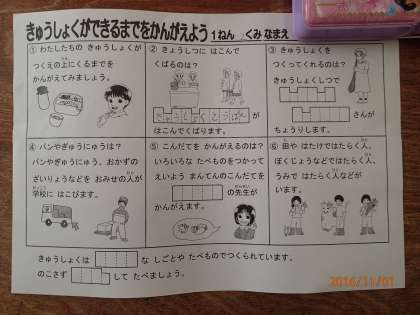 きゅうしょくができるまでをかんがえよう 1ねん くみ なまえ
① わたしたちの きゅうしょくが
つくえの上にくるまでを
かんがえてみましょう。
② きょうしつに はこんで
くばるのは？
きゅうしょくとうばん が
はこんでくばります。
③ きゅうしょくを
つくってくれるのは？
きゅうしょくしつで
さんが
ちょうりします。
④ パンやぎゅうにゅうは？
パンやぎゅうにゅう、おかずの
ざいりょうなどを おみせの人が
学校に はこびます。
⑤ こんだてを かんがえるのは？
いろいろな たべものをつかって
えいよう まんてんのこんだてを
の先生が
かんがえます。
⑥ 田や はたけではたらく人、
ぼくじょうなどではたらく人、
うみで はたらく人などが
います。
きゅうしょくは な しごとや たべものでつくられています。
のこさず して たべましょう。
2016/11/01